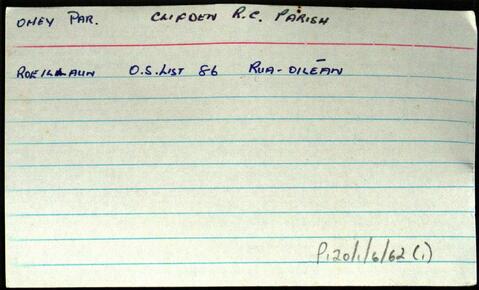 OMEY PAR. CLIFDEN R.C. PARISH
ROEILLAUN O.S. LIST 86 RUA-OILEÁN
P120/1/6/62 (1)